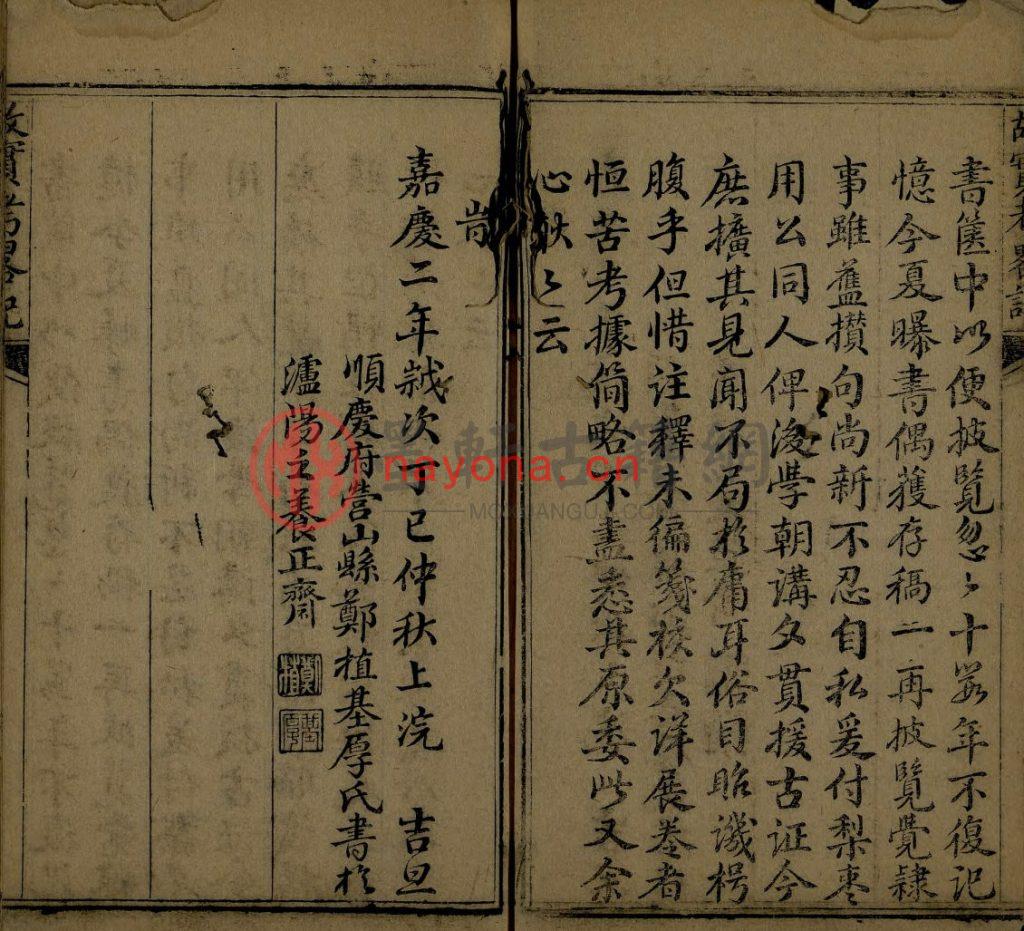 書篋中以便披覽忽〻十餘年不復記
憶今夏曝書偶獲存稿一再披覽覺隸
事雖舊攅句尚新不忍自私爰付梨棗
用公同人俾後學朝講夕貫援古证今
庶擴其見聞不局於庸耳俗目貽譏枵
腹乎但惜注釋未徧箋校欠详展卷者
恒苦考據简略不盡悉其原委此又余
心歉〻云
嘉慶二年歲次丁巳仲秋上浣 吉旦
順慶府营山縣鄭植基厚氏書於
瀘陽之養正齋
故實
nayona.cn
墨軒古籍網